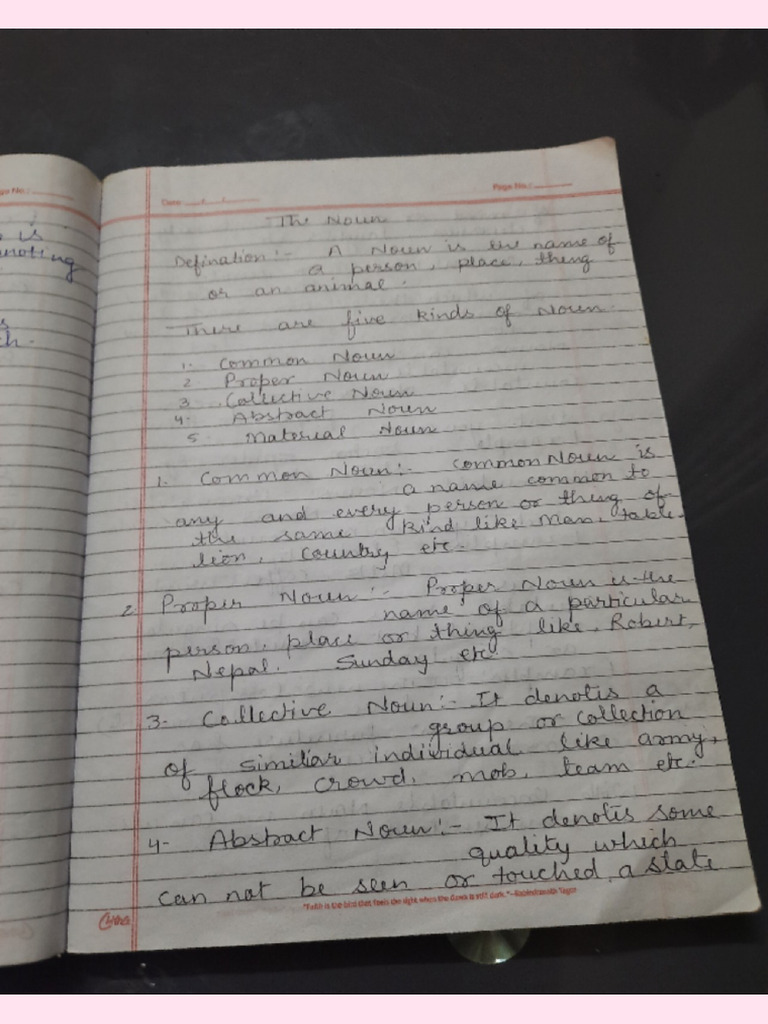 Page No.:
Date
Page No.:
is
enoting
The Noun
Defination:- A Noun is the name of
a person, place, thing
or an animal.
There are five kinds of Noun.
1. Common Noun
2 Proper Noun
3 Collective Noun
4- Abstract Noun
5. Material Noun
1. Common Noun:- Common Noun is
a name common to
any and every person or thing of
the same kind like Man, table
lion, Country etc.
2. Proper Noun:- Proper Noun is the
name of a particular
person, place or thing like Robert,
Nepal. Sunday etc.
3- Collective Noun:- It denotis a
group or collection
of similiar individual like army,
flock, crowd, mob, team etc.
4- Abstract Noun:- It denotis some
quality which
can not be seen or touched, a state
"Faith is the bird that feels the light when the dawn is still dark."-Rabindranath Tagor